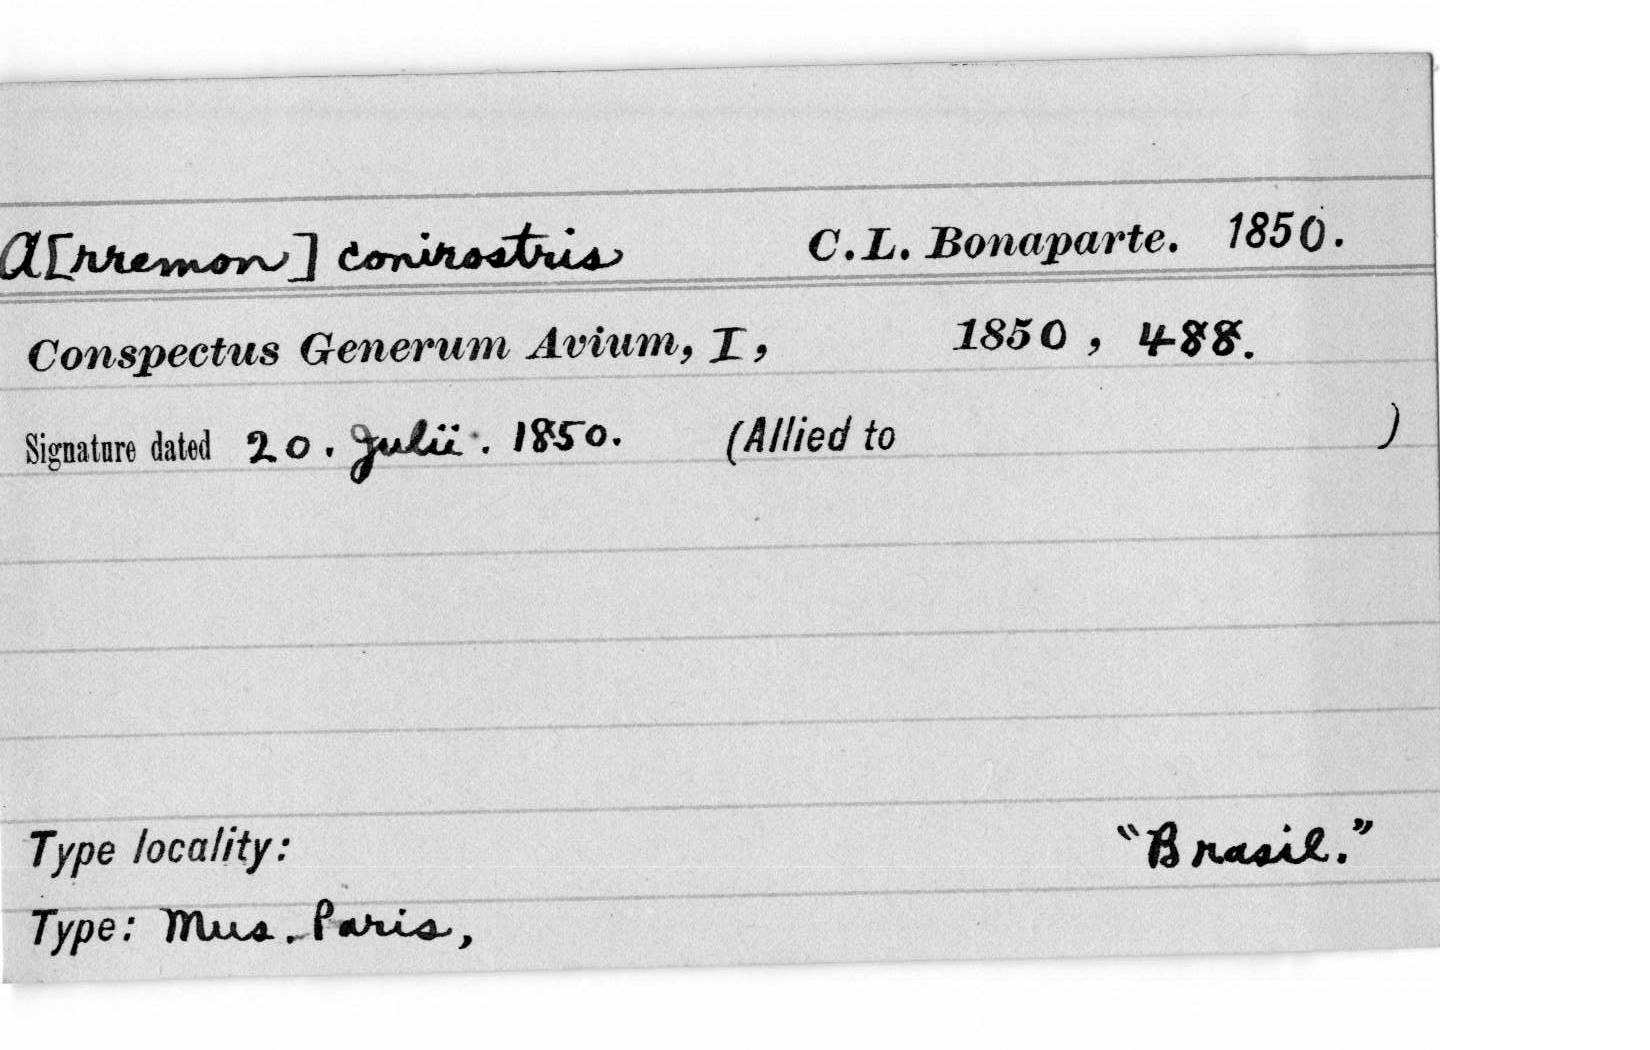 A[rremon] conirostris C.L. Bonaparte. 1850.
Conspectus Generum Avium, I, 1850, 488.
Signature dated 20. Julii. 1850. (Allied to )
Type locality: "Brasil."
Type: Mus. Paris,